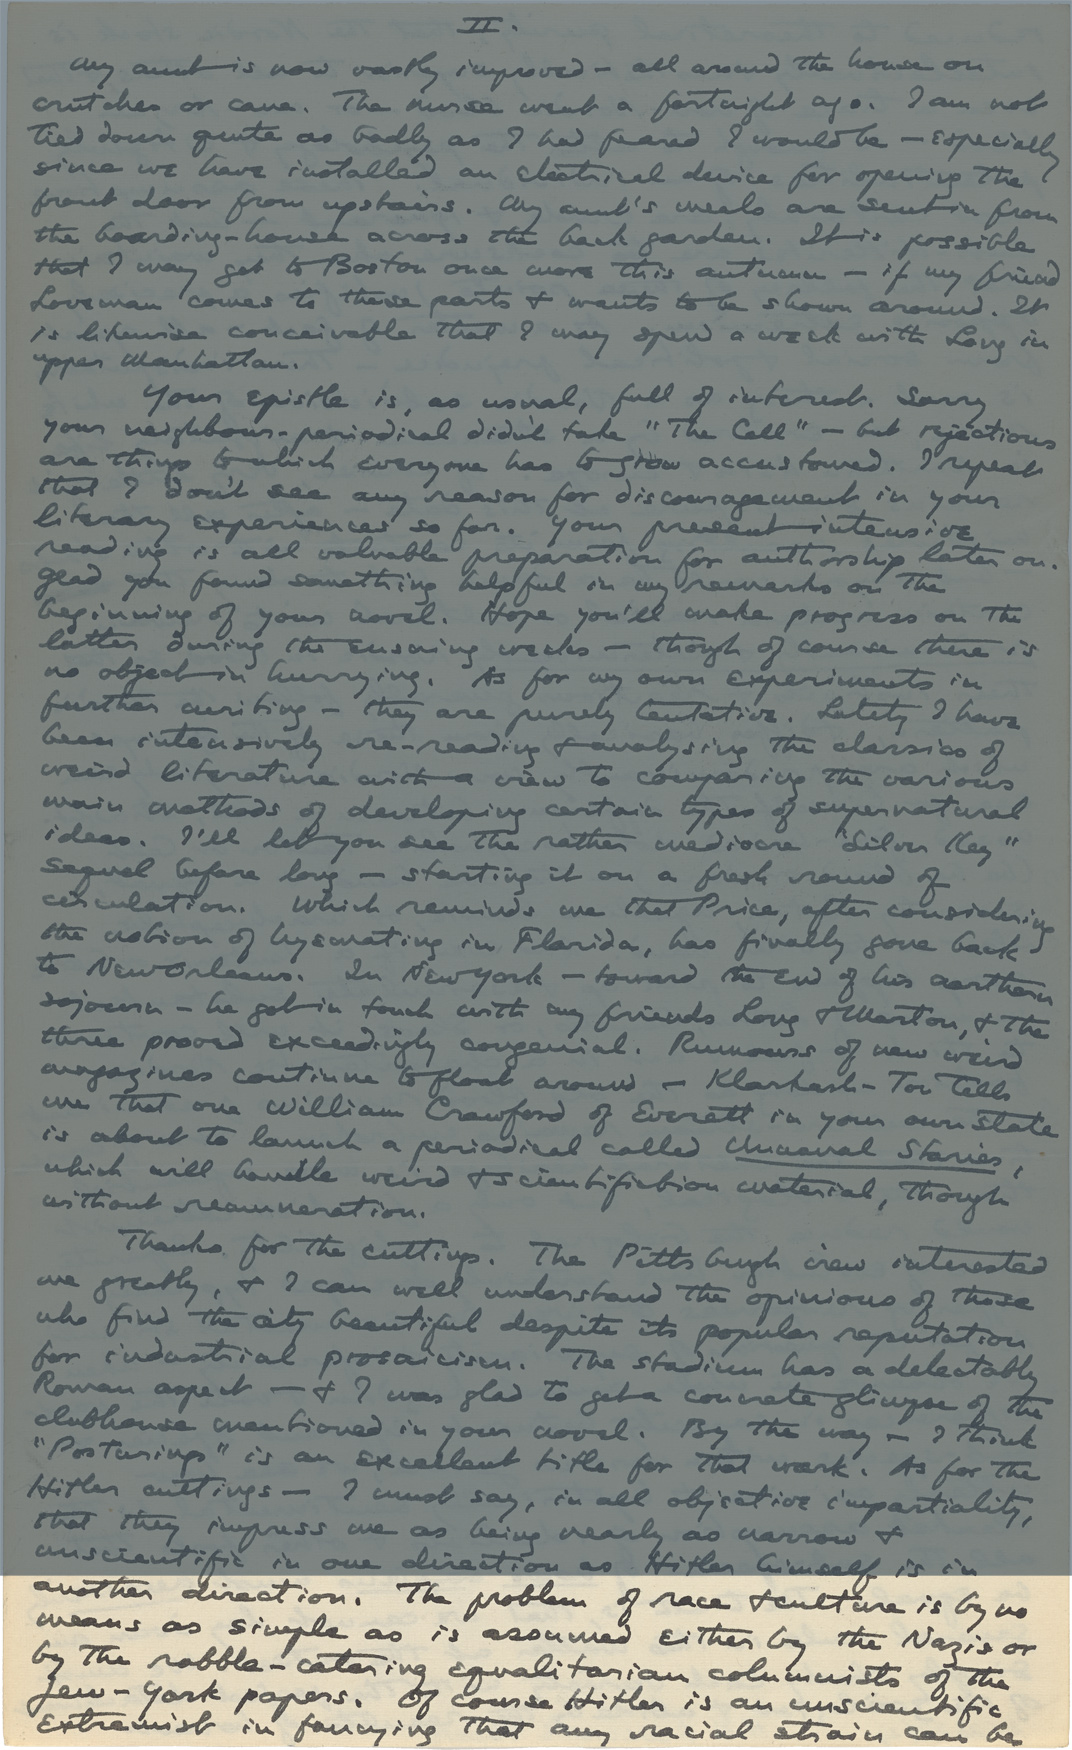 II.
My aunt is now vastly improved – all around the house on
crutches or cane. The nurse went a fortnight ago. I am not
tied down quite as badly as I had feared I would be – especially
since we have installed an electrical device for opening the
front door from upstairs. My aunt's meals are sent in from
the boarding-house across the back garden. It is possible
that I may get to Boston once more this autumn – if my friend
Loveman comes to these parts & wants to be shown around. It
is likewise conceivable that I may spend a week with Long in
upper Manhattan.
Your epistle is, as usual, full of interest. Sorry
your neighbour-periodical didn't take "The Call" – but rejections
are things to which everyone has to grow accustomed. I repeat
that I don't see any reason for discouragement in your
literary experiences so far. Your present intensive
reading is all valuable preparation for authorship later on.
Glad you found something helpful in my remarks on the
beginning of your novel. Hope you'll make progress on the
latter during the ensuing weeks – though of course there is
no object in hurrying. As for my own experiments in
further writing – they are purely tentative. Lately I have
been intensively re-reading & analysing the classics of
weird literature with a view to comparing the various
main methods of developing certain types of supernatural
ideas. I'll let you see the rather mediocre "Silver Key"
sequel before long – starting it on a fresh round of
circulation. Which reminds me that Price, after considering
the notion of hyemating in Florida, has finally gone back
to New Orleans. In New York – toward the end of his northern
sojourn – he got in touch with my friends Long & Morton, & the
three proved exceedingly congenial. Rumours of new weird
magazines continue to float around – Klarkash-Ton tells
me that one William Crawford of Everett in your own state
is about to launch a periodical called Unusual Stories,
which will handle weird & scientifiction material, though
without remuneration.
Thanks for the cuttings. The Pittsburgh view interested
me greatly, & I can well understand the opinions of those
who find the city beautiful despite its popular reputation
for industrial prosaicism. The stadium has a delectably
Roman aspect – & I was glad to get a concrete glimpse of the
clubhouse mentioned in your novel. By the way – I think
"Posturings" is an excellent title for that work. As for the
Hitler cuttings – I must say, in all objective impartiality,
that they impress me as being nearly as narrow &
unscientific in one direction as Hitler himself is in
another direction. The problem of race & culture is by no
means as simple as is assumed either by the Nazis or
by the rabble-catering equalitarian columnists of the
Jew-York papers. Of course Hitler is an unscientific
extremist in fancying that any racial strain can be